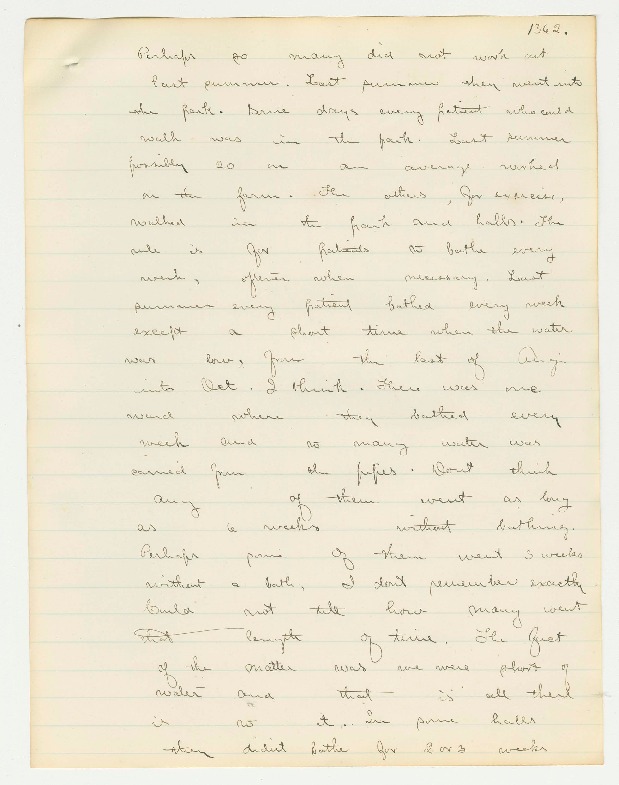 1362.
Perhaps so many did not work out
last summer. Last summer they went into
the park. Some days every patient who could
walk was in the park. Last summer
possibly 20 on an average worked
on the farm. The others, for exercise,
walked in the park and halls. The
rule is for patients to bathe every
week, oftener when necessary. Last
summer every patient bathed every week
except a short time when the water
was low, from the last of Aug.
into Oct. I think. There was one
ward where they bathed every
week and to many water was
carried from the pipes. Dont think
any of them went as long
as 6 weeks without bathing.
Perhaps some of them went 3 weeks
without a bath, I dont remember exactly
Could not tell how many went
that length of time. The fact
of the matter was we were short of
water and that is all there
is to it. In some halls
they didnt bathe for 2 or 3 weeks